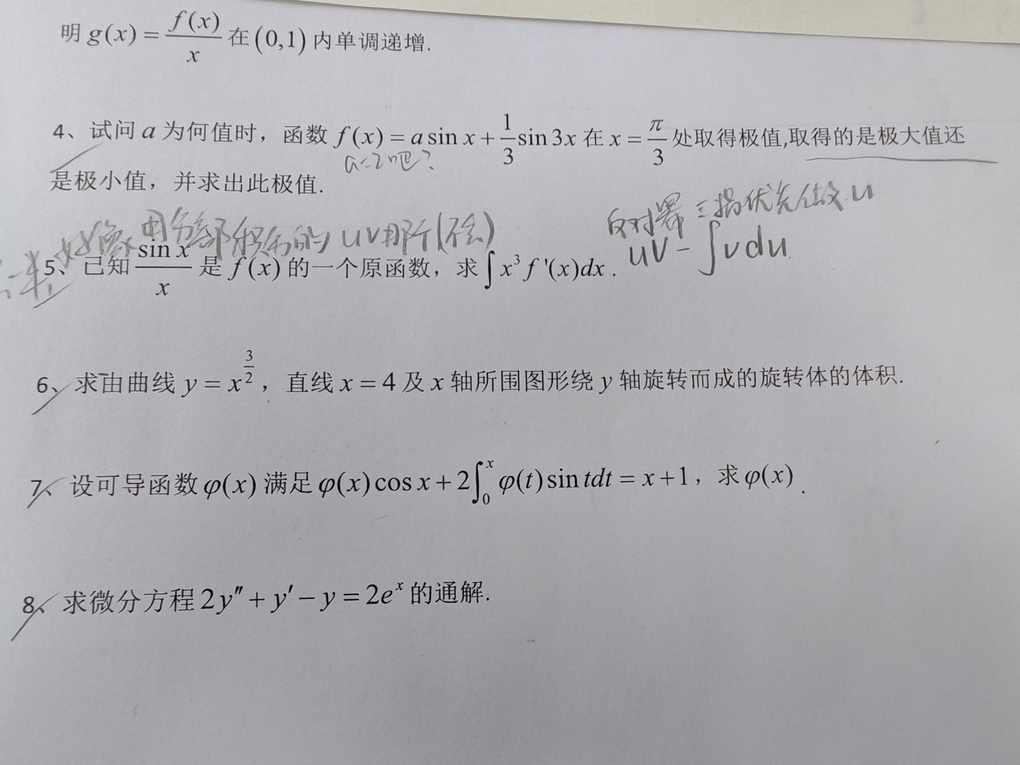 明 g(x) = f(x)/x 在 (0,1) 内单调递增.
4、试问 a 为何值时，函数 f(x) = a sin x + 1/3 sin 3x 在 x = π/3 处取得极值,取得的是极大值还
a=2吧?
是极小值，并求出此极值.
反对幂三指优先做 u
uv - ∫vdu
5、已知 sin x/x 是 f(x) 的一个原函数，求 ∫x³f'(x)dx.
6、求由曲线 y = x^(3/2)，直线 x = 4 及 x 轴所围图形绕 y 轴旋转而成的旋转体的体积.
7、设可导函数 φ(x) 满足 φ(x)cos x + 2∫₀ˣ φ(t)sin tdt = x+1，求 φ(x).
8、求微分方程 2y″ + y′ − y = 2eˣ 的通解.